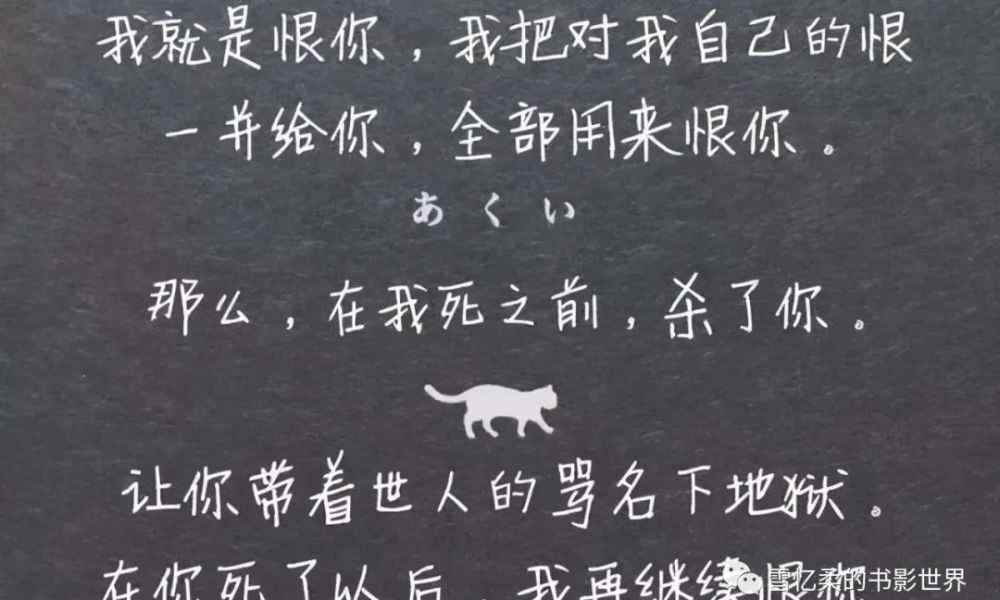 我就是恨你，我把对我自己的恨
一并给你，全部用来恨你。
あくい
那么，在我死之前，杀了你。
让你带着世人的骂名下地狱。
在你死了以后，我再继续恨你
雪忆柔的书影世界